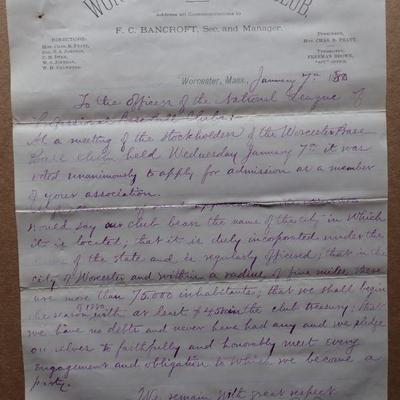 WOR CLUB.
Address all Communications to
F. C. BANCROFT, Sec. and Manager.
DIRECTORS:
HON. CHAS. B. PRATT,
W. S. JOURDAN,
W. H. CRAWFORD.
PRESIDENT,
HON. CHAS. B. PRATT.
TREASURER,
FREEMAN BROWN,
"SPY" OFFICE.
Worcester, Mass., January 7th 1880
To the Officers of the National League of
Professional Base Ball Clubs:
At a meeting of the Stockholders of the Worcester Base
Ball Club held Wednesday January 7th it was
voted unanimously to apply for admission as a member
of your association.
would say our club bears the name of the city in which
it is located; that it is duly incorporated under the
of the state and is regularly officered; that in the
city of Worcester and within a radius of five miles, there
are more than 75,000 inhabitants; that we shall begin
the season of 1880 with at least in the club treasury; that
we have no debts and never have had any and we pledge
ourselves to faithfully and honorably meet every
engagement and obligation to which we become a
party.
We remain with great respect